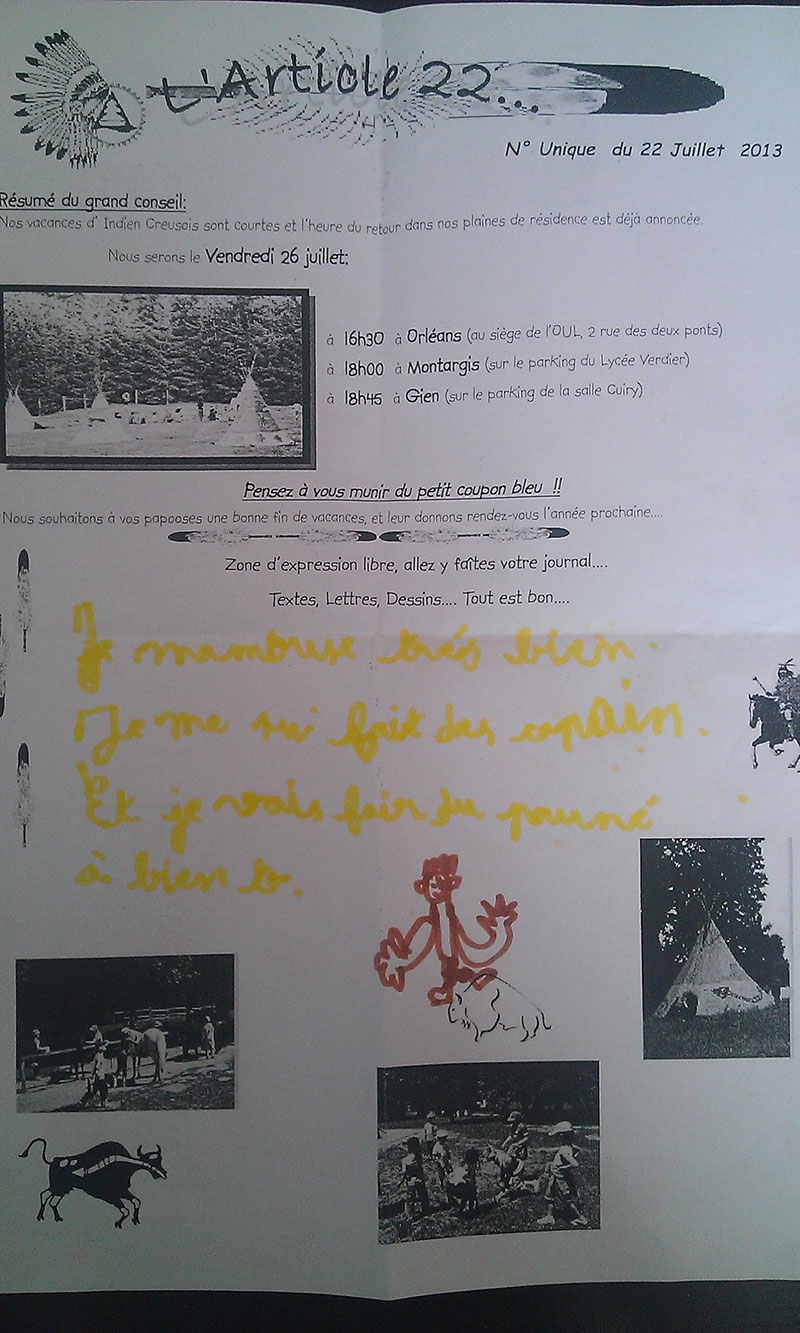 L'Article 22...
N° Unique du 22 Juillet 2013
Résumé du grand conseil:
Nos vacances d' Indien Creusois sont courtes et l'heure du retour dans nos plaines de résidence est déjà annoncée.
Nous serons le Vendredi 26 juillet:
à 16h30 à Orléans (au siège de l'OUL, 2 rue des deux ponts)
à 18h00 à Montargis (sur le parking du Lycée Verdier)
à 18h45 à Gien (sur le parking de la salle Cuiry)
Pensez à vous munir du petit coupon bleu !!
Nous souhaitons à vos papooses une bonne fin de vacances, et leur donnons rendez-vous l'année prochaine....
Zone d'expression libre, allez y faîtes votre journal....
Textes, Lettres, Dessins.... Tout est bon....
Je mambuse trés bien.
Je me sui fait des copain.
Et je vais fair du pouné
à bien to.